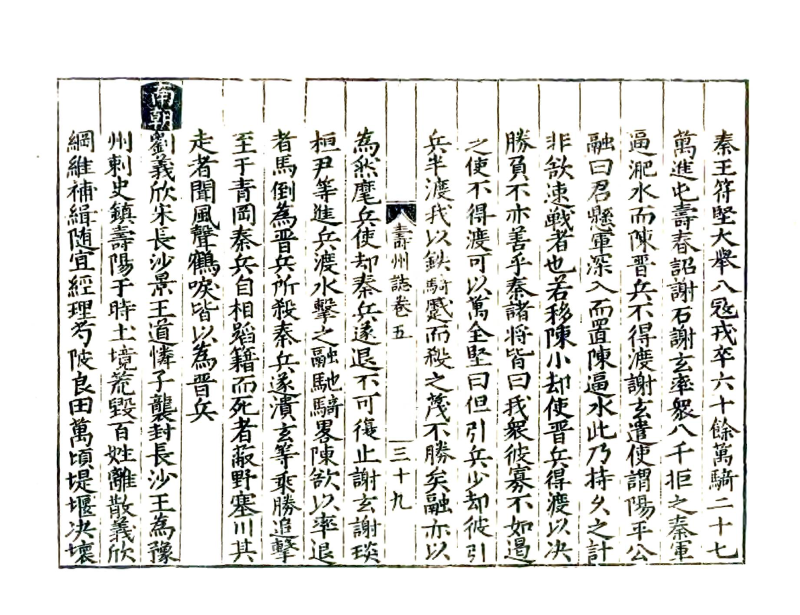 秦王苻堅大舉入寇戎卒六十餘萬騎二十七
萬進屯壽春詔謝石謝玄率眾八千拒之秦軍
逼淝水而陳晋兵不得渡謝玄遣使謂陽平公
融曰君懸軍深入而置陳逼水此乃持久之計
非欲速戰者也若移陳小却使晋兵得渡以决
勝負不亦善乎秦諸将皆曰我眾彼寡不如遏
之使不得渡可以萬全堅曰但引兵少却彼引
兵半渡我以鉄騎蹙而殺之蔑不勝矣融亦以
壽州誌卷五 三十九
為然麾兵使却秦兵遂退不可復止謝玄謝琰
桓尹等進兵渡水擊之融馳騎畧陳欲以率退
者馬倒為晋兵所殺秦兵遂潰玄等乘勝追擊
至于青岡秦兵自相蹈籍而死者蔽野塞川其
走者聞風聲鶴唳皆以為晋兵
南朝劉義欣宋長沙景王道憐子襲封長沙王為豫
州刺史鎮壽陽于時土境荒毀百姓離散義欣
綱維補緝随宜經理芍陂良田萬頃堤堰决壞